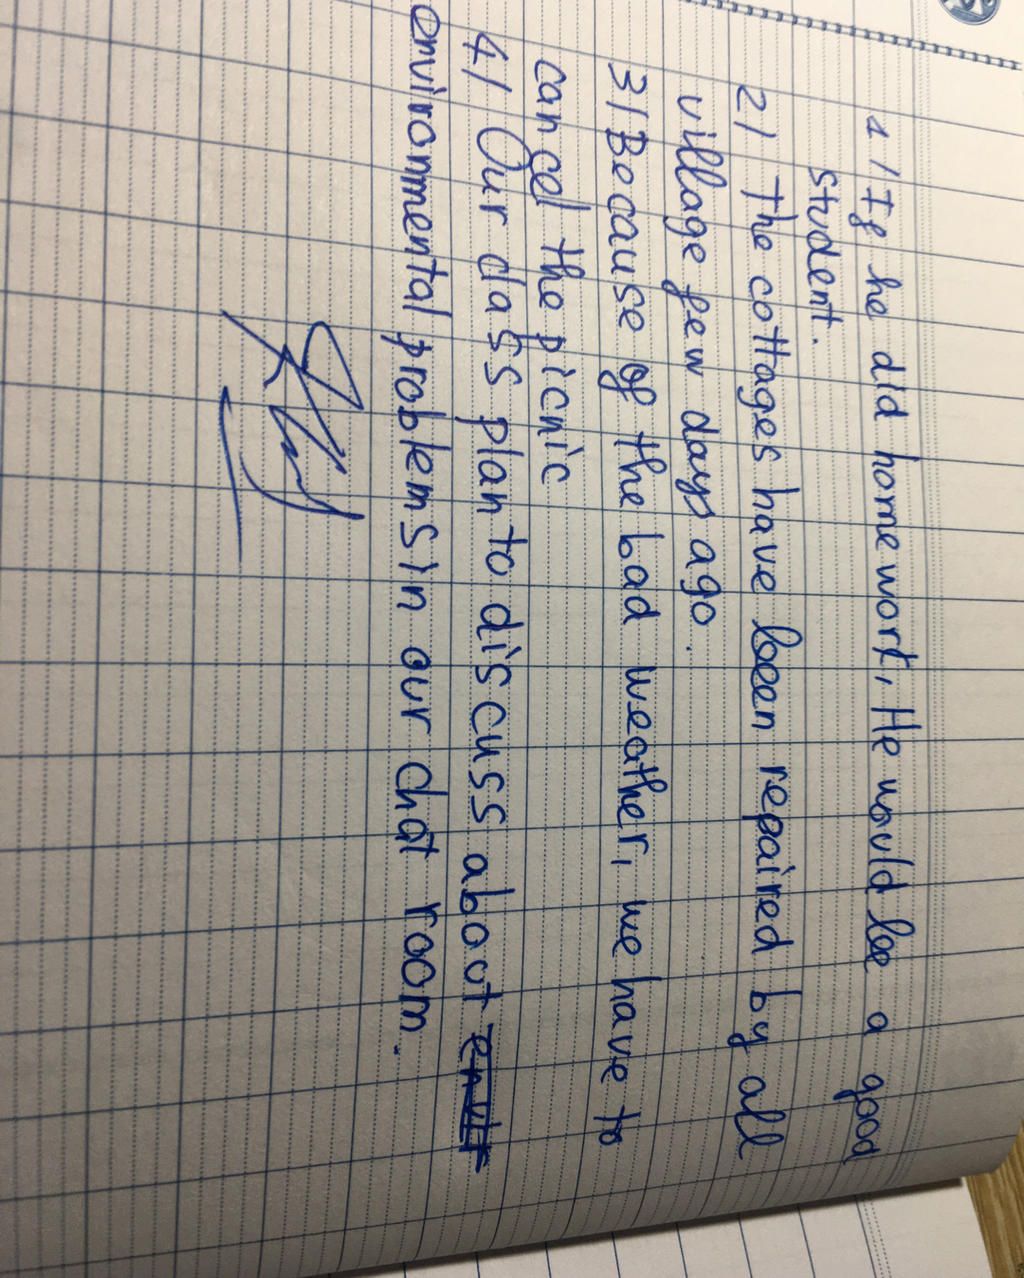 1/ If he did homework, He would be a good
student.
2/ The cottages have been repaired by all
village few days ago.
3/ Because of the bad weather, we have to
cancel the picnic
4/ Our class plan to discuss about
environmental problems in our chat room.